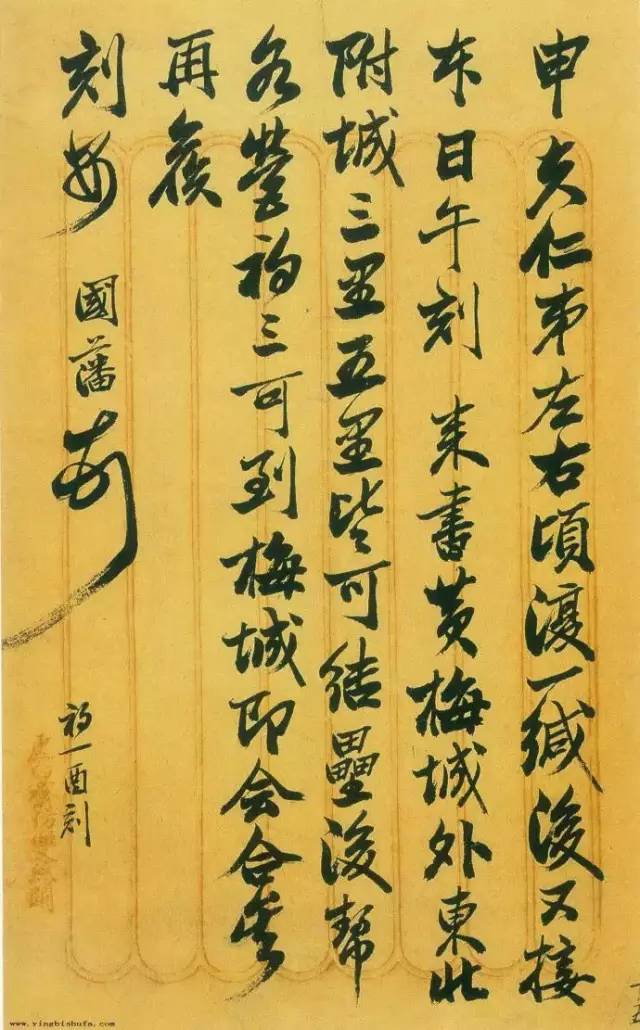 申夫仁弟左右頃濅一緘後又接
本日午刻 来書黄梅城外東北
附城三里五里皆可結壘後幇
各營初三可到梅城即会合矣
再候
刻安
國藩
初一酉刻
www.yingbishufa.com